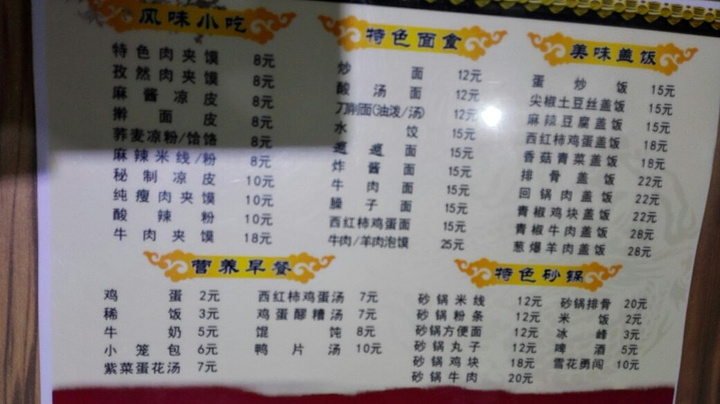 风味小吃
特色肉夹馍 8元
孜然肉夹馍 8元
麻酱凉皮 8元
擀面皮 8元
荞麦凉粉/饸饹 8元
麻辣米线/粉 8元
秘制凉皮 10元
纯瘦肉夹馍 10元
酸辣粉 10元
牛肉夹馍 18元
特色面食
炒面 12元
酸汤面 12元
刀削面(油泼/汤) 12元
水饺 15元
面 15元
炸酱面 15元
牛肉面 15元
臊子面 15元
西红柿鸡蛋面 15元
牛肉/羊肉泡馍 25元
美味盖饭
蛋炒饭 15元
尖椒土豆丝盖饭 15元
麻辣豆腐盖饭 15元
西红柿鸡蛋盖饭 18元
香菇青菜盖饭 18元
排骨盖饭 22元
回锅肉盖饭 22元
青椒鸡块盖饭 22元
青椒牛肉盖饭 28元
葱爆羊肉盖饭 28元
营养早餐
鸡蛋 2元
稀饭 3元
牛奶 5元
小笼包 6元
紫菜蛋花汤 7元
西红柿鸡蛋汤 7元
鸡蛋醪糟汤 7元
馄饨 8元
鸭片汤 10元
特色砂锅
砂锅米线 12元
砂锅粉条 12元
砂锅方便面 12元
砂锅丸子 12元
砂锅鸡块 18元
砂锅牛肉 20元
砂锅排骨 20元
米饭 2元
冰峰 3元
啤酒 5元
雪花勇闯 10元